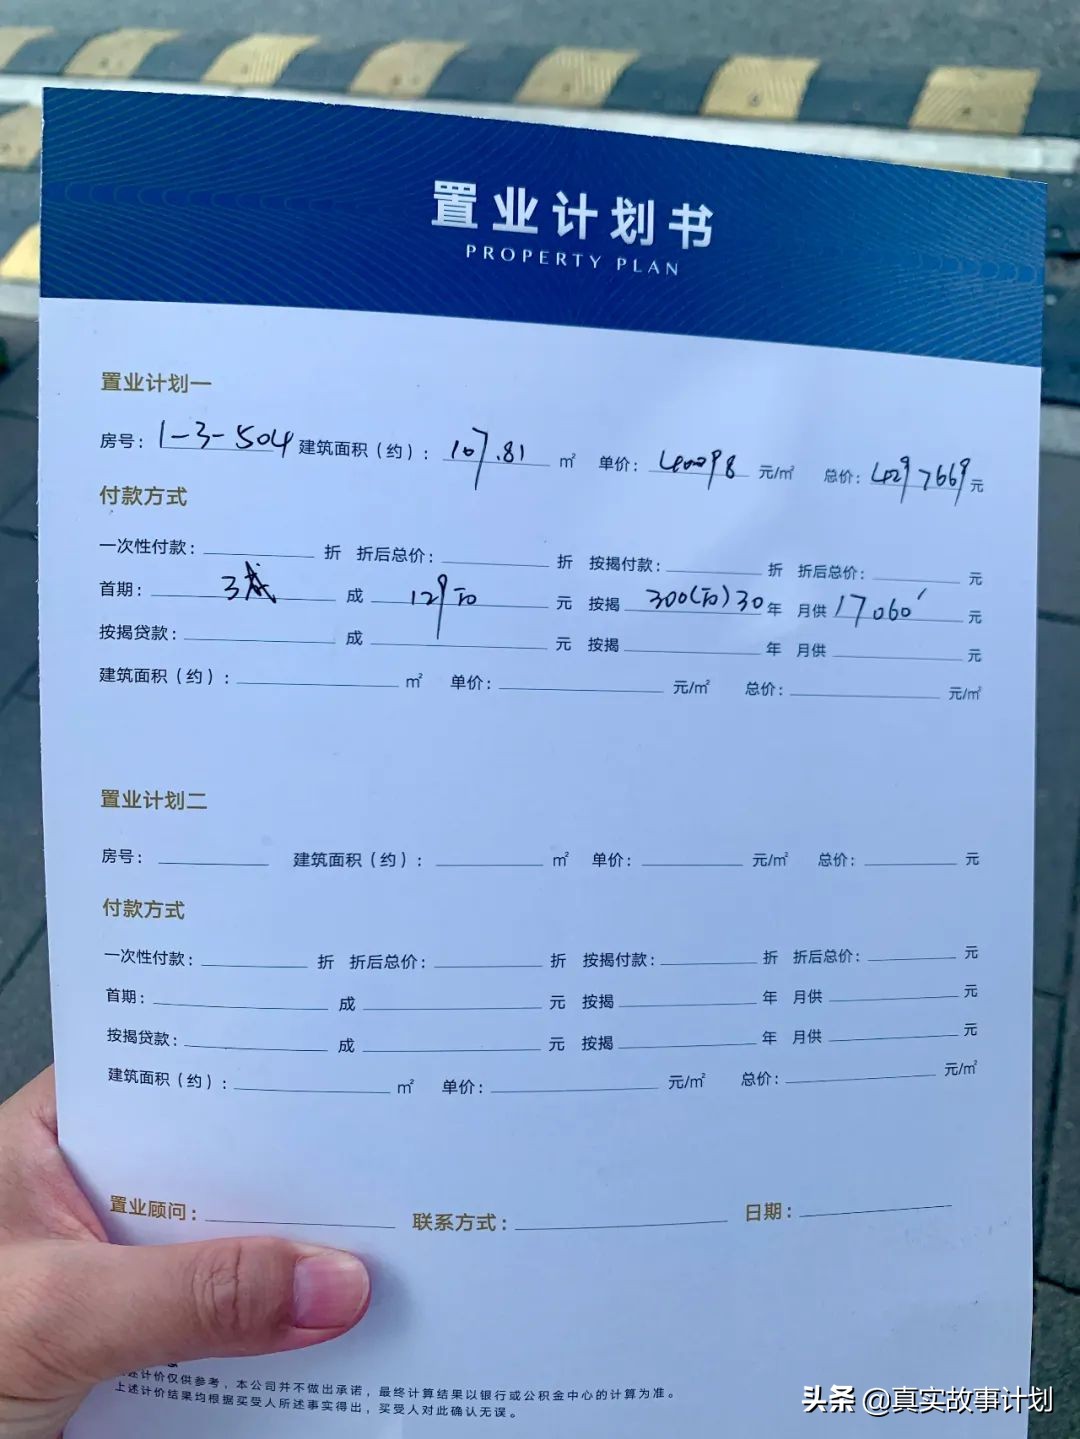 置业计划书
PROPERTY PLAN
置业计划一
房号: 1-3-504 建筑面积（约）: 107.81 ㎡ 单价: 40098 元/㎡ 总价: 4297669 元
付款方式
一次性付款: 折 折后总价: 折 按揭付款: 折 折后总价: 元
首期: 3成 成 129万 元 按揭 300(万)30 年 月供 17060' 元
按揭贷款: 成 元 按揭 年 月供 元
建筑面积（约）: ㎡ 单价: 元/㎡ 总价: 元/㎡
置业计划二
房号: 建筑面积（约）: ㎡ 单价: 元/㎡ 总价: 元
付款方式
一次性付款: 折 折后总价: 折 按揭付款: 折 折后总价: 元
首期: 成 元 按揭 年 月供 元
按揭贷款: 成 元 按揭 年 月供 元
建筑面积（约）: ㎡ 单价: 元/㎡ 总价: 元/㎡
置业顾问: 联系方式: 日期:
述计价仅供参考，本公司并不做出承诺，最终计算结果以银行或公积金中心的计算为准。
上述计价结果均根据买受人所述事实得出，买受人对此确认无误。
头条 @真实故事计划